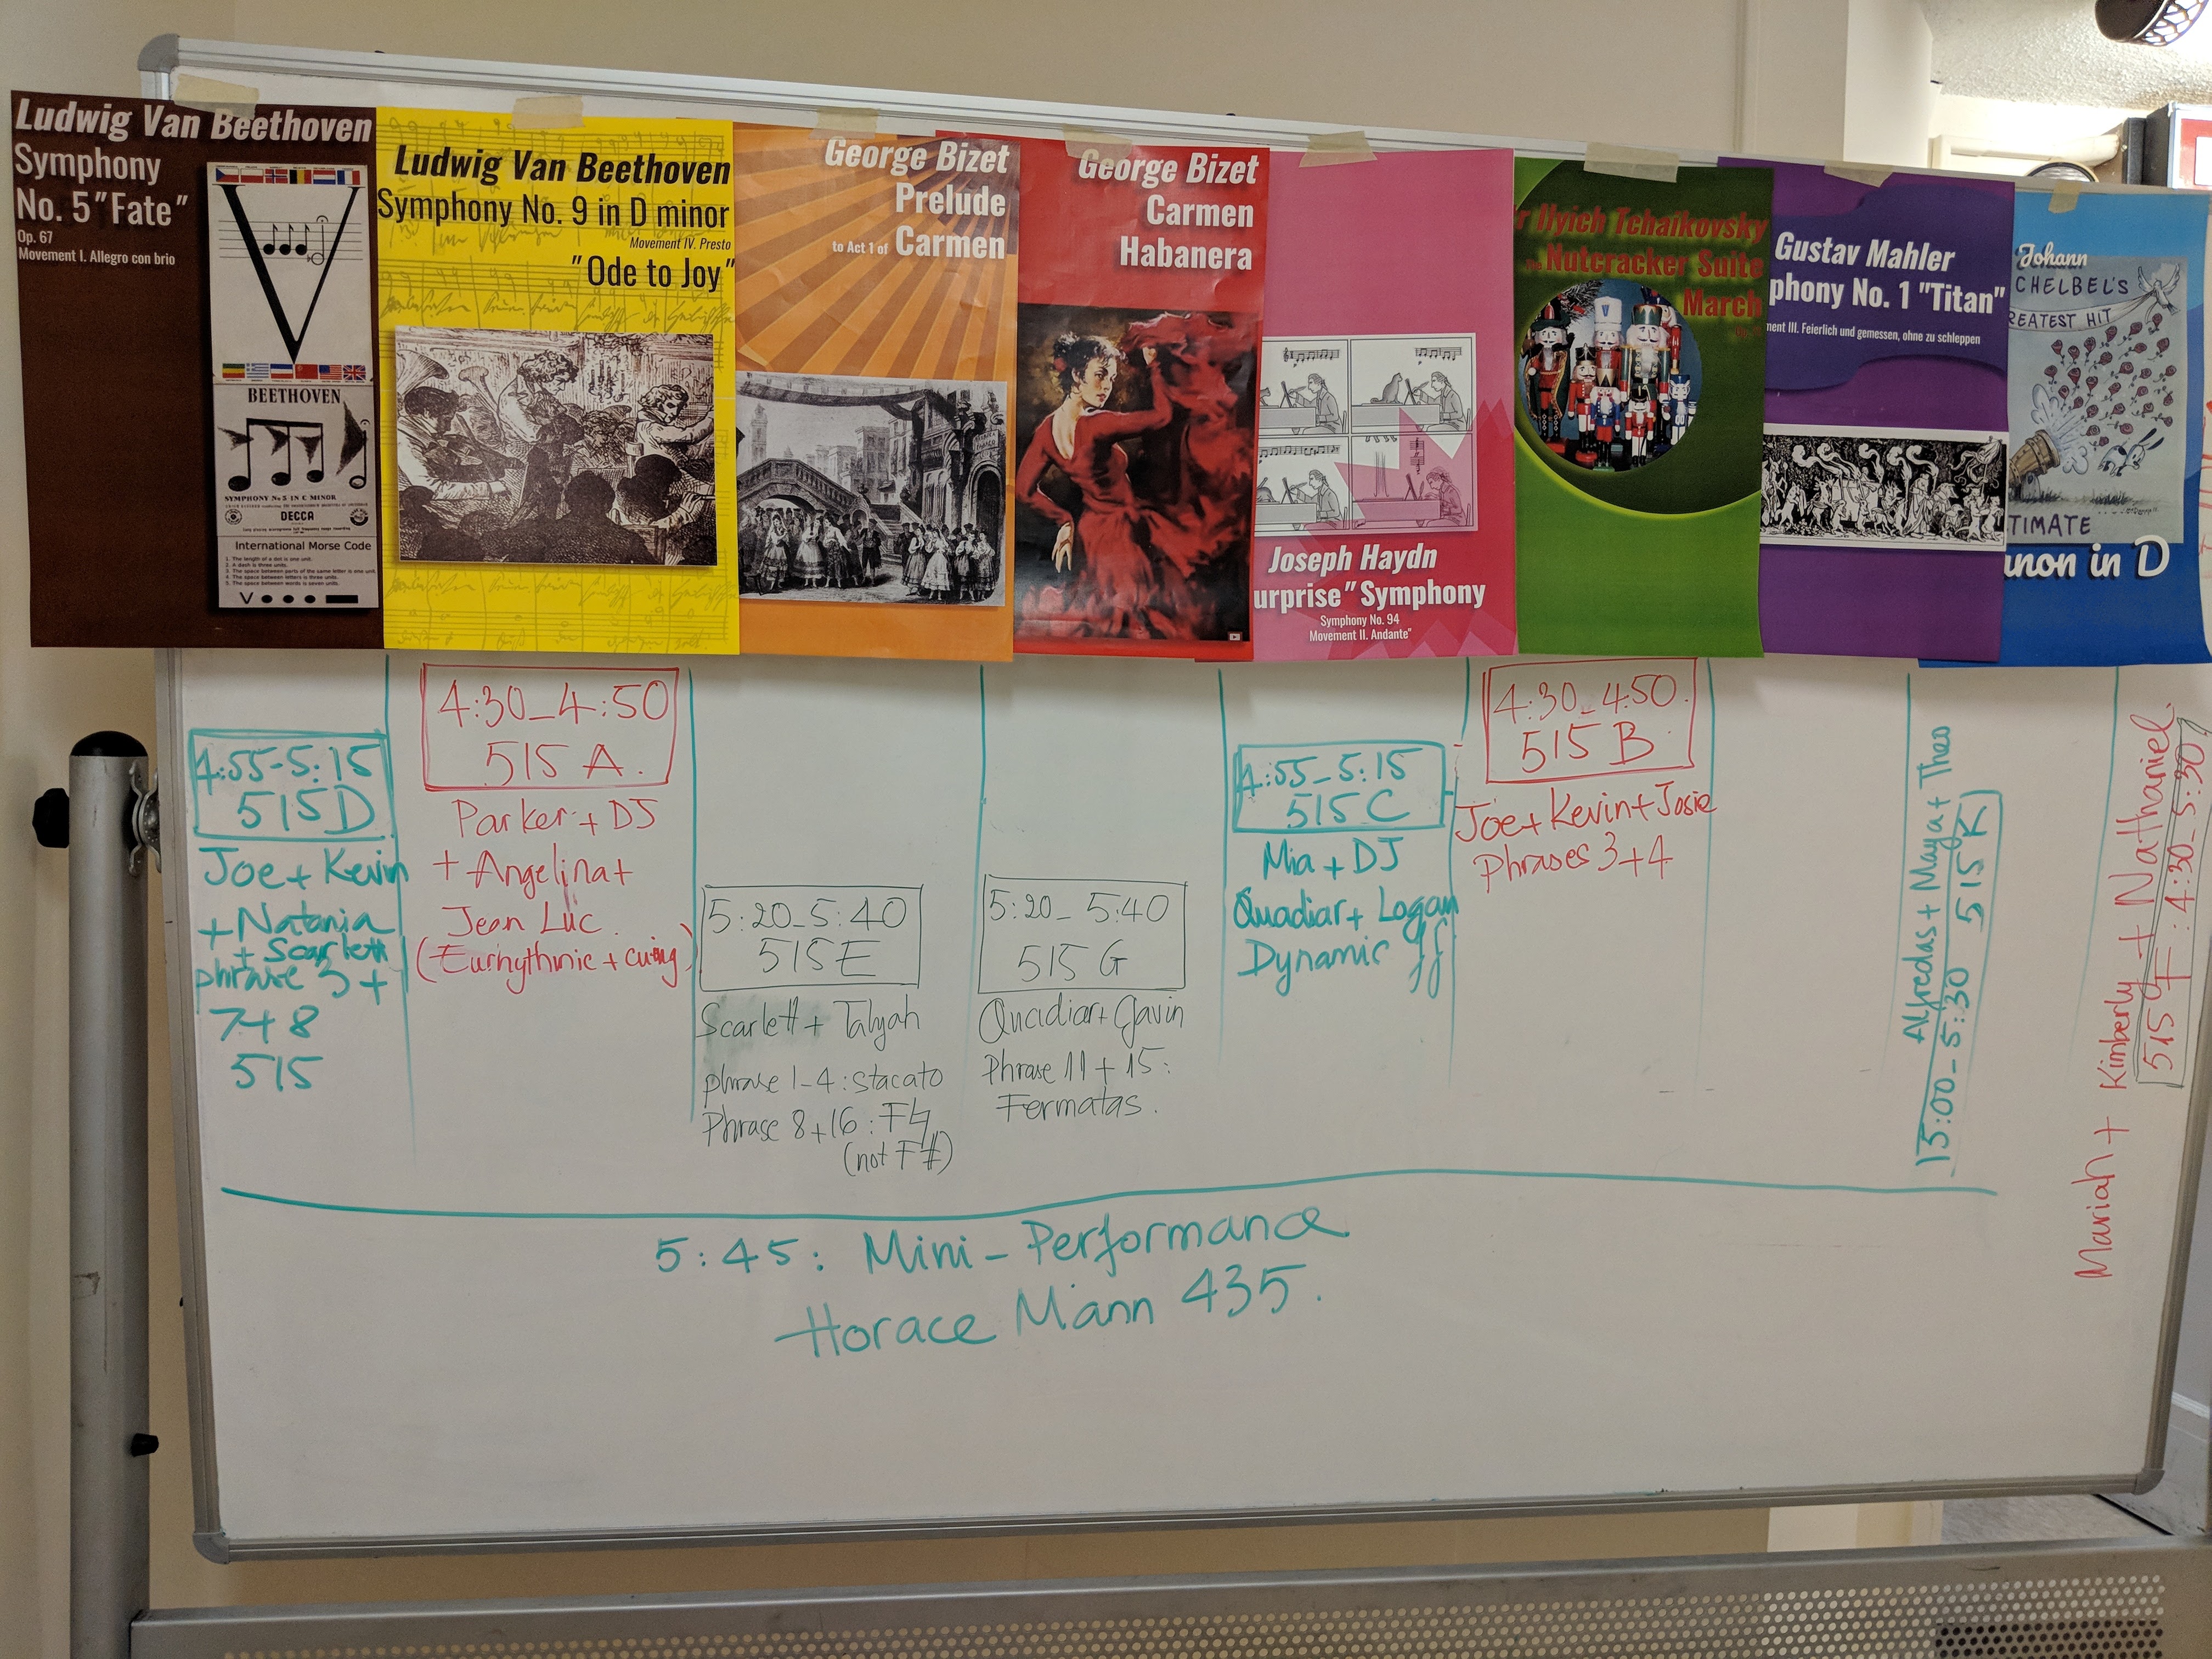 Ludwig Van Beethoven
Symphony
No. 5 "Fate"
Op. 67
Movement I. Allegro con brio
V
BEETHOVEN
SYMPHONY No 5 IN C MINOR
DECCA
International Morse Code
1. The length of a dot is one unit.
2. A dash is three units.
3. The space between parts of the same letter is one unit.
4. The space between letters is three units.
5. The space between words is seven units.
V
Ludwig Van Beethoven
Symphony No. 9 in D minor
Movement IV. Presto
"Ode to Joy"
George Bizet
Prelude
to Act 1 of Carmen
George Bizet
Carmen
Habanera
Joseph Haydn
urprise" Symphony
Symphony No. 94
Movement II. Andante"
r Ilyich Tchaikovsky
Nutcracker Suite
March
Gustav Mahler
phony No. 1 "Titan"
ment III. Feierlich und gemessen, ohne zu schleppen
Johann
CHELBEL'S
REATEST HIT
TIMATE
non in D
4:55-5:15
515 D
Joe + Kevin
+ Natania
+ Scarlett
phrase 3 +
7+8
515
4:30-4:50
515 A.
Parker + DJ
+ Angelina +
Jean Luc
(Eurhythmic + cuing)
5:20-5:40
515 E
Scarlett + Talyah
phrase 1-4: stacato
Phrase 8+16: F♮
(not F#)
5:20-5:40
515 G
Quadiar + Gavin
Phrase 11 + 15:
Fermatas.
4:55-5:15
515 C
Mia + DJ
Quadiar + Logan
Dynamic ff
4:30-4:50.
515 B
Joe + Kevin + Josie
Phrases 3+4
Alfredas + Maya + Theo
5:00-5:30 515 K
Mariah + Kimberly + Nathaniel
515 F: 4:30-5:30
5:45: Mini-Performance
Horace Mann 435.